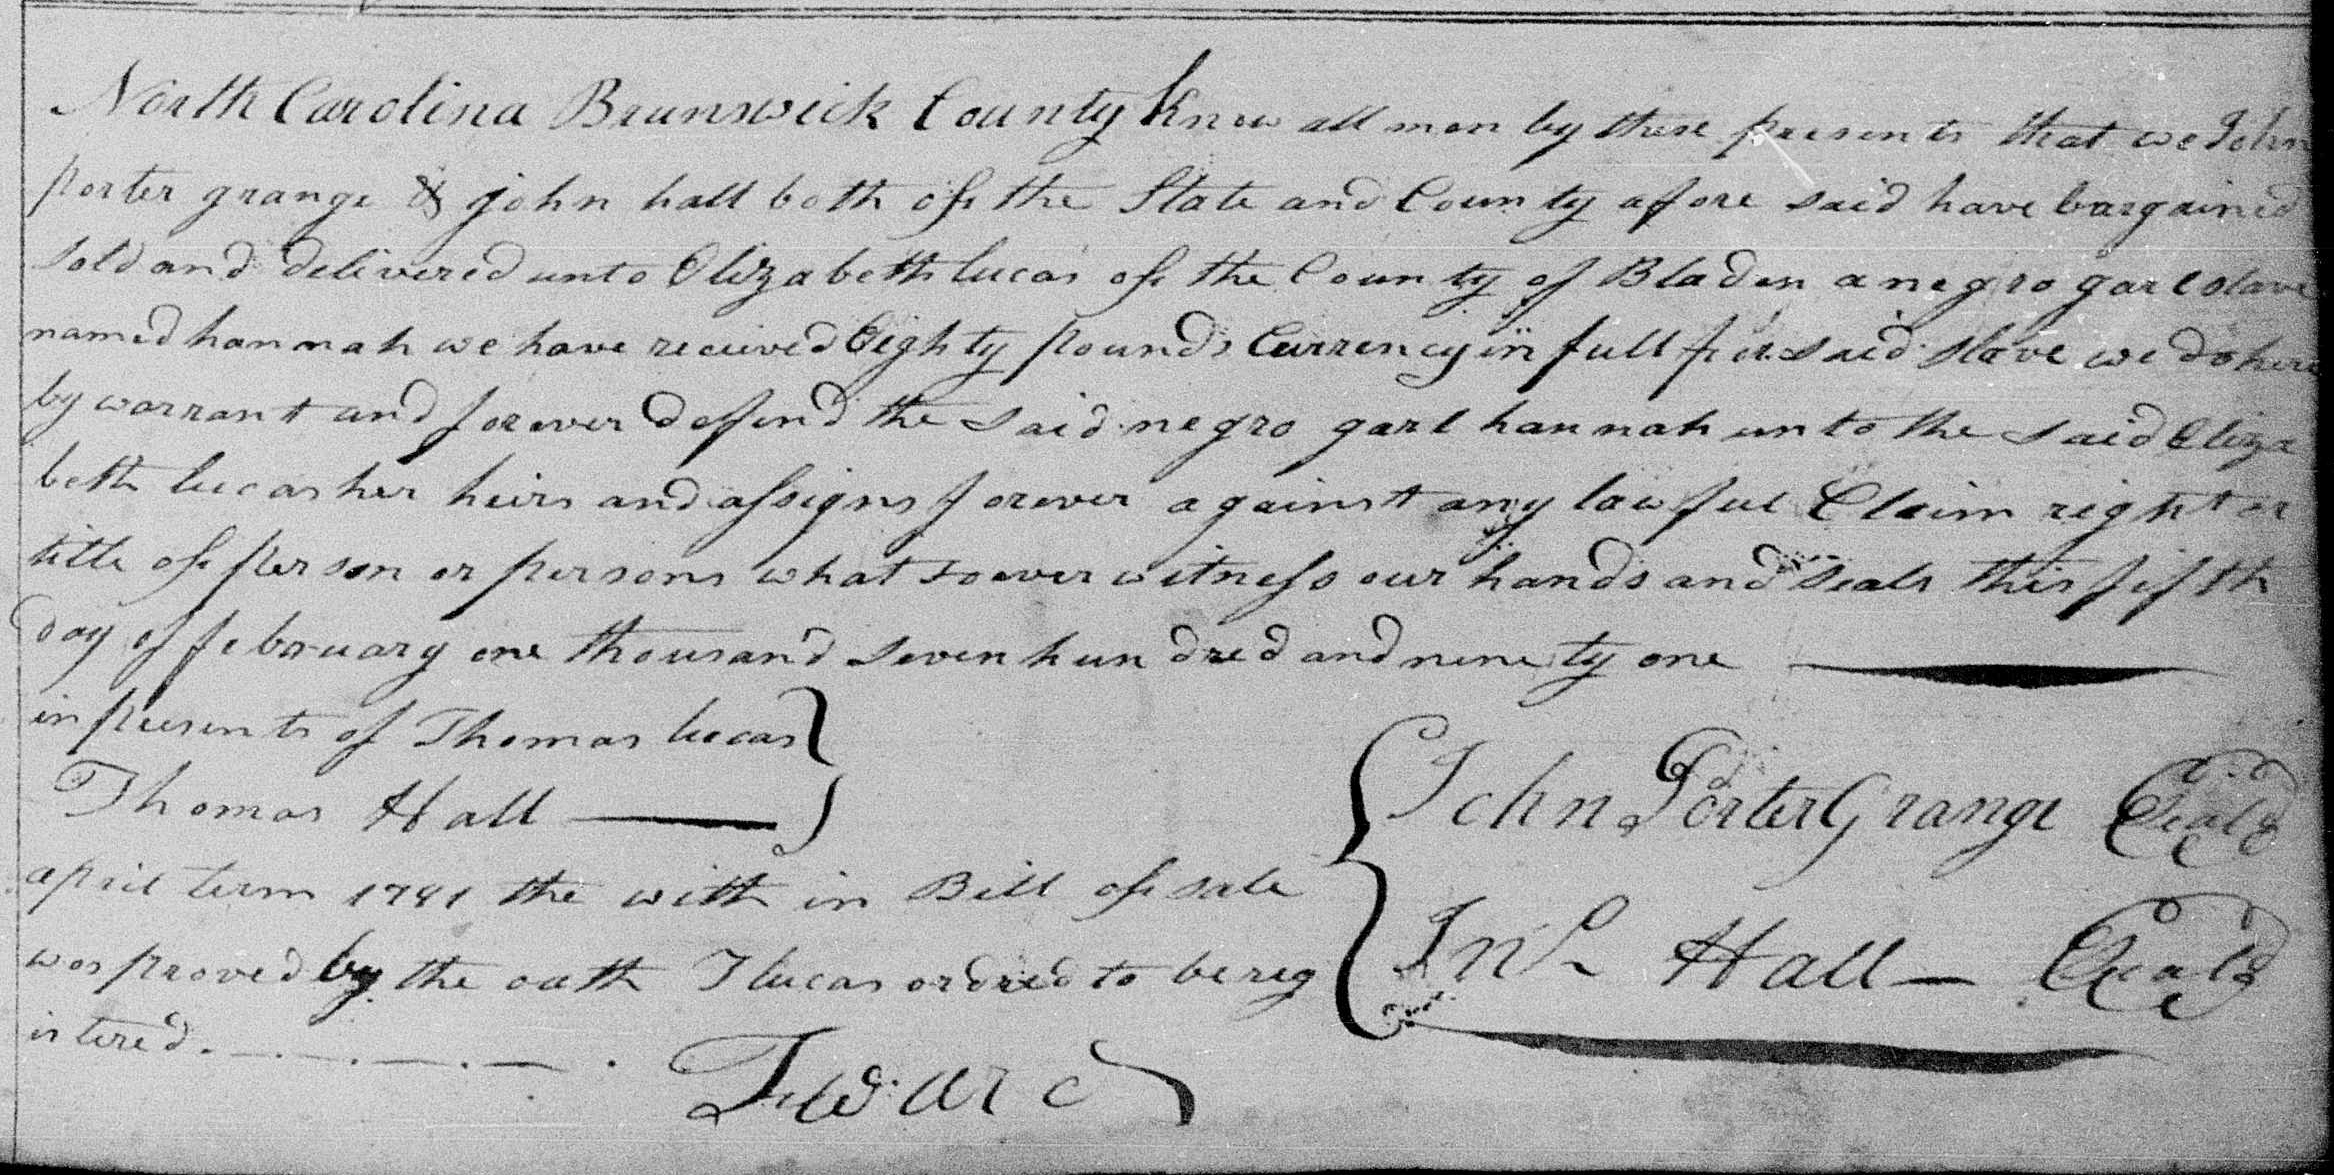 North Carolina Brunswick County Know all men by these presents that we John
porter grange & john hall both of the State and County afore said have bargained
sold and delivered unto Elizabeth lucas of the County of Bladen a negro garl slave
named hannah we have recieved Eighty pounds Currency in full for said slave we do here
by warrant and forever defend the said negro garl hannah unto the said Eliza
beth lucas her heirs and assigns forever against any lawful Claim right or
title of person or persons what soever witness our hands and seals this fifth
day of february one thousand seven hundred and ninety one
in presents of Thomas lucas
Thomas Hall
John Porter Grange Seal
april term 1791 the with in Bill of sale
Jno Hall Seal
was proved by the oath T lucas ordred to be reg
istered